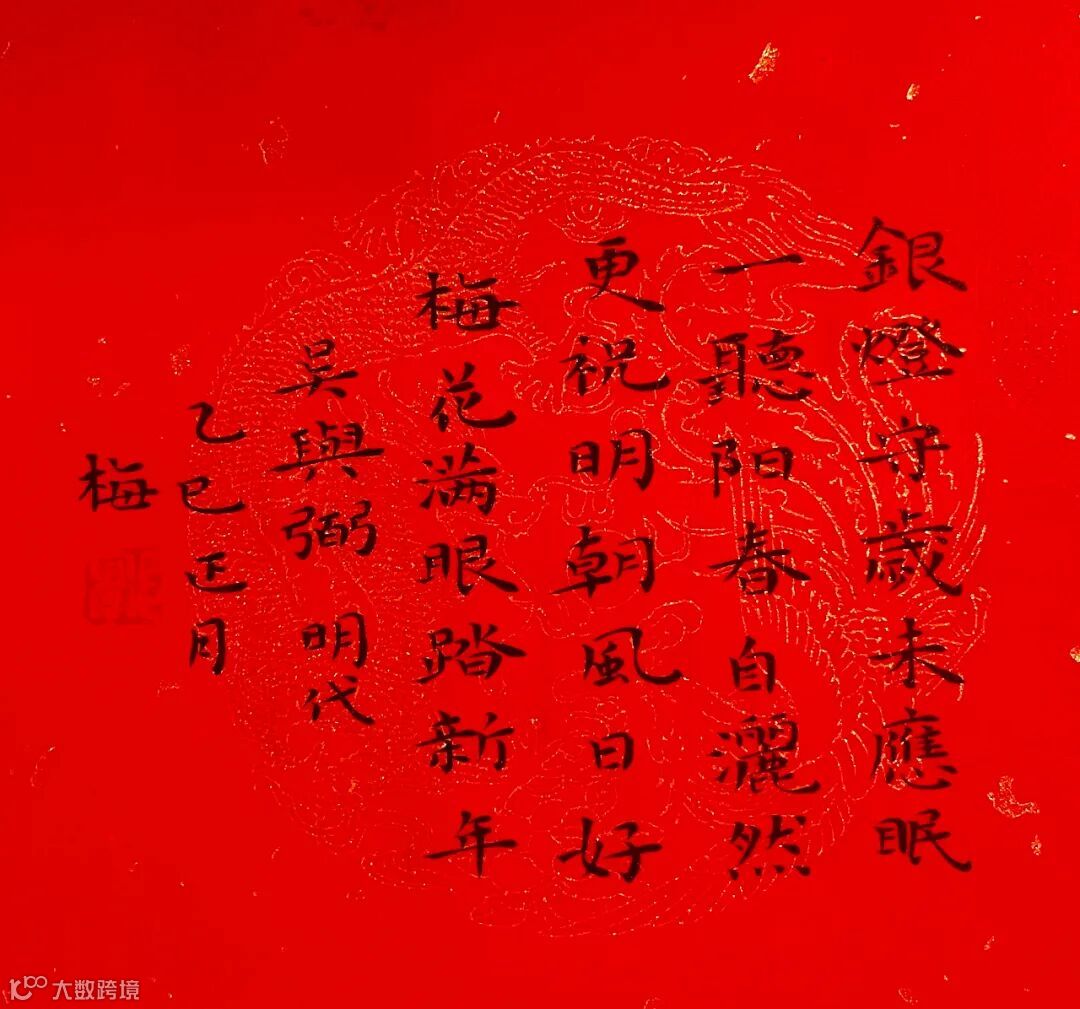 銀燈守歲未應眠
一聽阳春自灑然
更祝明朝風日好
梅花满眼踏新年
吳與弼 明代
乙巳正月
梅
大数跨境